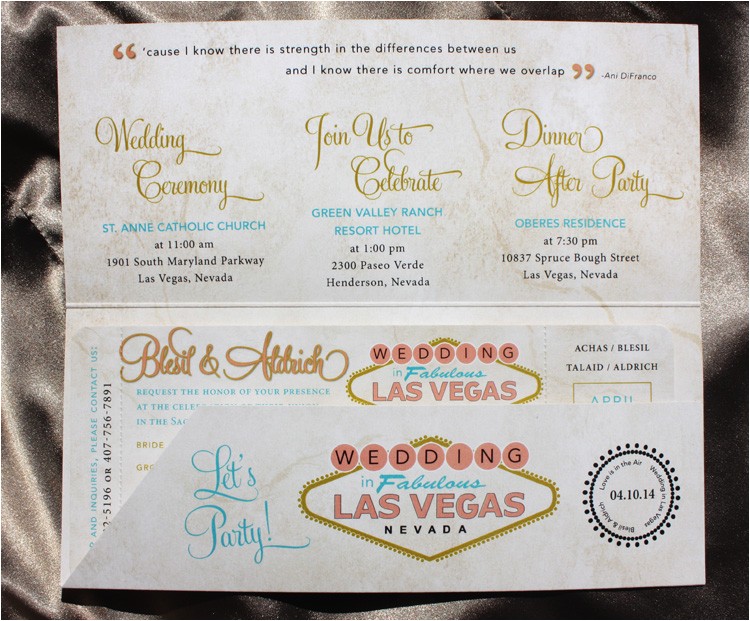 “ 'cause I know there is strength in the differences between us
and I know there is comfort where we overlap ” -Ani DiFranco
Wedding
Ceremony
ST. ANNE CATHOLIC CHURCH
at 11:00 am
1901 South Maryland Parkway
Las Vegas, Nevada
Join Us to
Celebrate
GREEN VALLEY RANCH
RESORT HOTEL
at 1:00 pm
2300 Paseo Verde
Henderson, Nevada
Dinner
After Party
OBERES RESIDENCE
at 7:30 pm
10837 Spruce Bough Street
Las Vegas, Nevada
AND INQUIRIES, PLEASE CONTACT US:
5196 OR 407-756-7891
Blesil & Aldrich
REQUEST THE HONOR OF YOUR PRESENCE
AT THE
IN THE
BRIDE
WEDDING
in Fabulous
LAS VEGAS
ACHAS / BLESIL
TALAID / ALDRICH
APRIL
Let's
Party!
WEDDING
in Fabulous
LAS VEGAS
NEVADA
Love is in the Air
Wedding in Las Vegas
Blesil & Aldrich
04.10.14